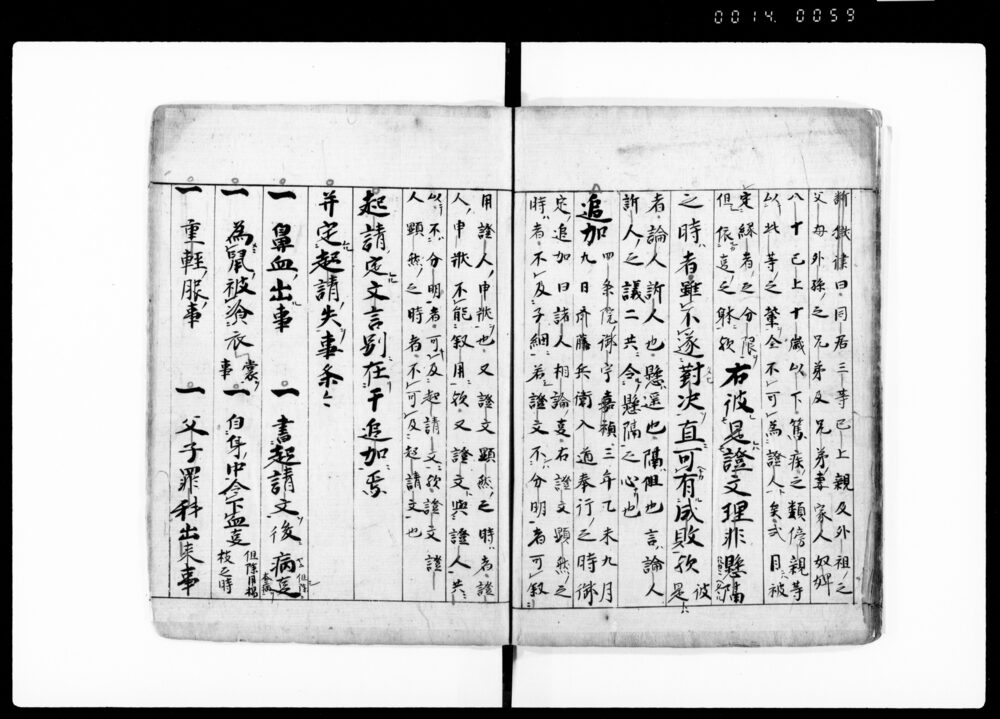 0014 0059
断獄律曰同居三等已上親及外祖之
父母外孫之兄弟及兄弟妻家人奴婢
八十已上十歳以下篤疾之類傍親等
以此等之輩全不可為證人矣或目被
定縁者之分限
但依事之躰歟
右彼是證文理非懸隔
之時者雖不遂對決直可有成敗歟
彼是
者論人訴人也懸遥也隔阻也言論人
訴人之議二共令懸隔之心也
追加
四条院御宇嘉禎三年乙未九月
九日斉藤兵衛入道奉行之時御
定追加曰諸人相論事右證文顕然之
時者不及子細若證文不分明者可叙
用證人申状也又證文顕然之時者證
人申状不能叙用歟又證文與證人共
以不分明者可及起請文歟證文證
人顕然之時者不可及起請文也
起請定文言別在于追加焉
并定起請失事条々
一鼻血出事 一書起請文後病事
但除本病
一為鼠被飡衣裳事 一自身中令下血事
但除用楊枝之時
一重軽服事 一父子罪科出来事